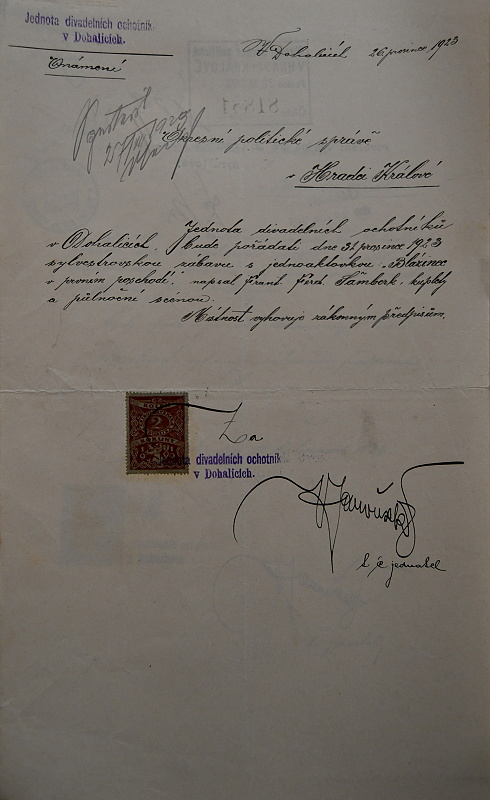 Jednota divadelních ochotník
v Dohalicích.
V Dohalicích 26 prosince 1923
Oznámení
Okresní politické správě
v Hradci Králové
Jednota divadelních ochotníků
v Dohalicích, bude pořádati dne 31 prosince 1923
sylvestrovskou zábavu s jednoaktovkou „Blázinec
v prvním poschodí", napsal Frant Ferd. Šamberk, kuplety
a půlnoční scénou.
Místnost vyhovuje zákonným předpisům.
2
Za
divadelních ochotník
v Dohalicích.
t. č. jednatel